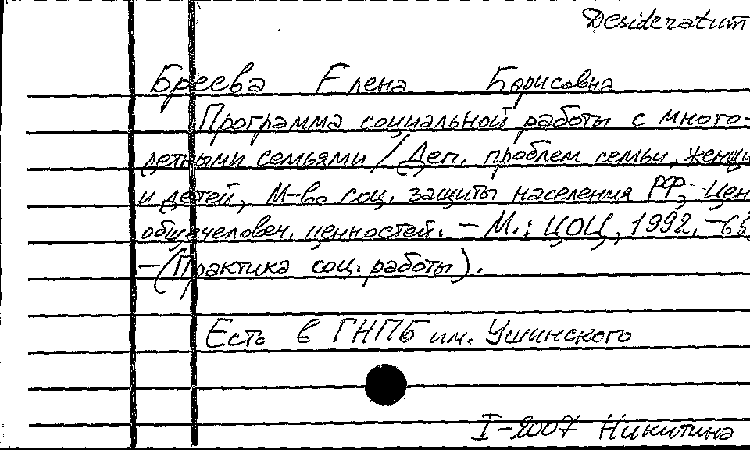 Desideratum
Бреева Елена Борисовна
Программа социальной работы с много-
детными семьями / Деп. проблем семьи, женщи
и детей, М-во соц. защиты населения РФ; Цен
общечеловеч. ценностей. – М.: ЦОЦ, 1992. –
– (Практика соц. работы).
Есть в ГНПБ им. Ушинского
I-2007 Никитина